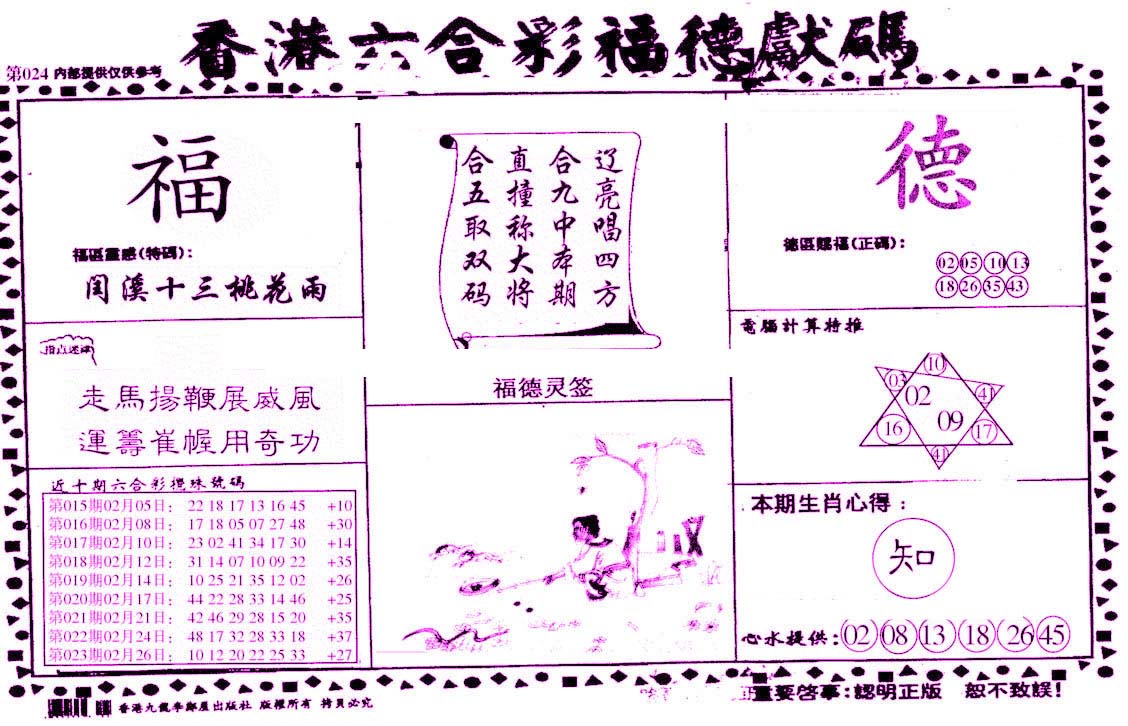 香港六合彩福德獻碼
第024 内部提供仅供参考
福
福區靈感(特碼):
閏溪十三桃花雨
指点迷津
走馬揚鞭展威風
運籌崔幄用奇功
近十期六合彩攪珠號碼
第015期02月05日: 22 18 17 13 16 45 +10
第016期02月08日: 17 18 05 07 27 48 +30
第017期02月10日: 23 02 41 34 17 30 +14
第018期02月12日: 31 14 07 10 09 22 +35
第019期02月14日: 10 25 21 35 12 02 +26
第020期02月17日: 44 22 28 33 14 46 +25
第021期02月21日: 42 46 29 28 15 20 +35
第022期02月24日: 48 17 32 28 33 18 +37
第023期02月26日: 10 12 20 22 25 33 +27
辽亮唱四方
合九中本期
直撞称大将
合五取双码
福德灵签
德
德區賜福(正碼):
02 05 10 13
18 26 35 43
電腦計算特推
10
03 41
02
09
16 17
41
本期生肖心得:
知
心水提供: 02 08 13 18 26 45
版權所有 拷貝必究
重要啓事:認明正版 恕不致誤!